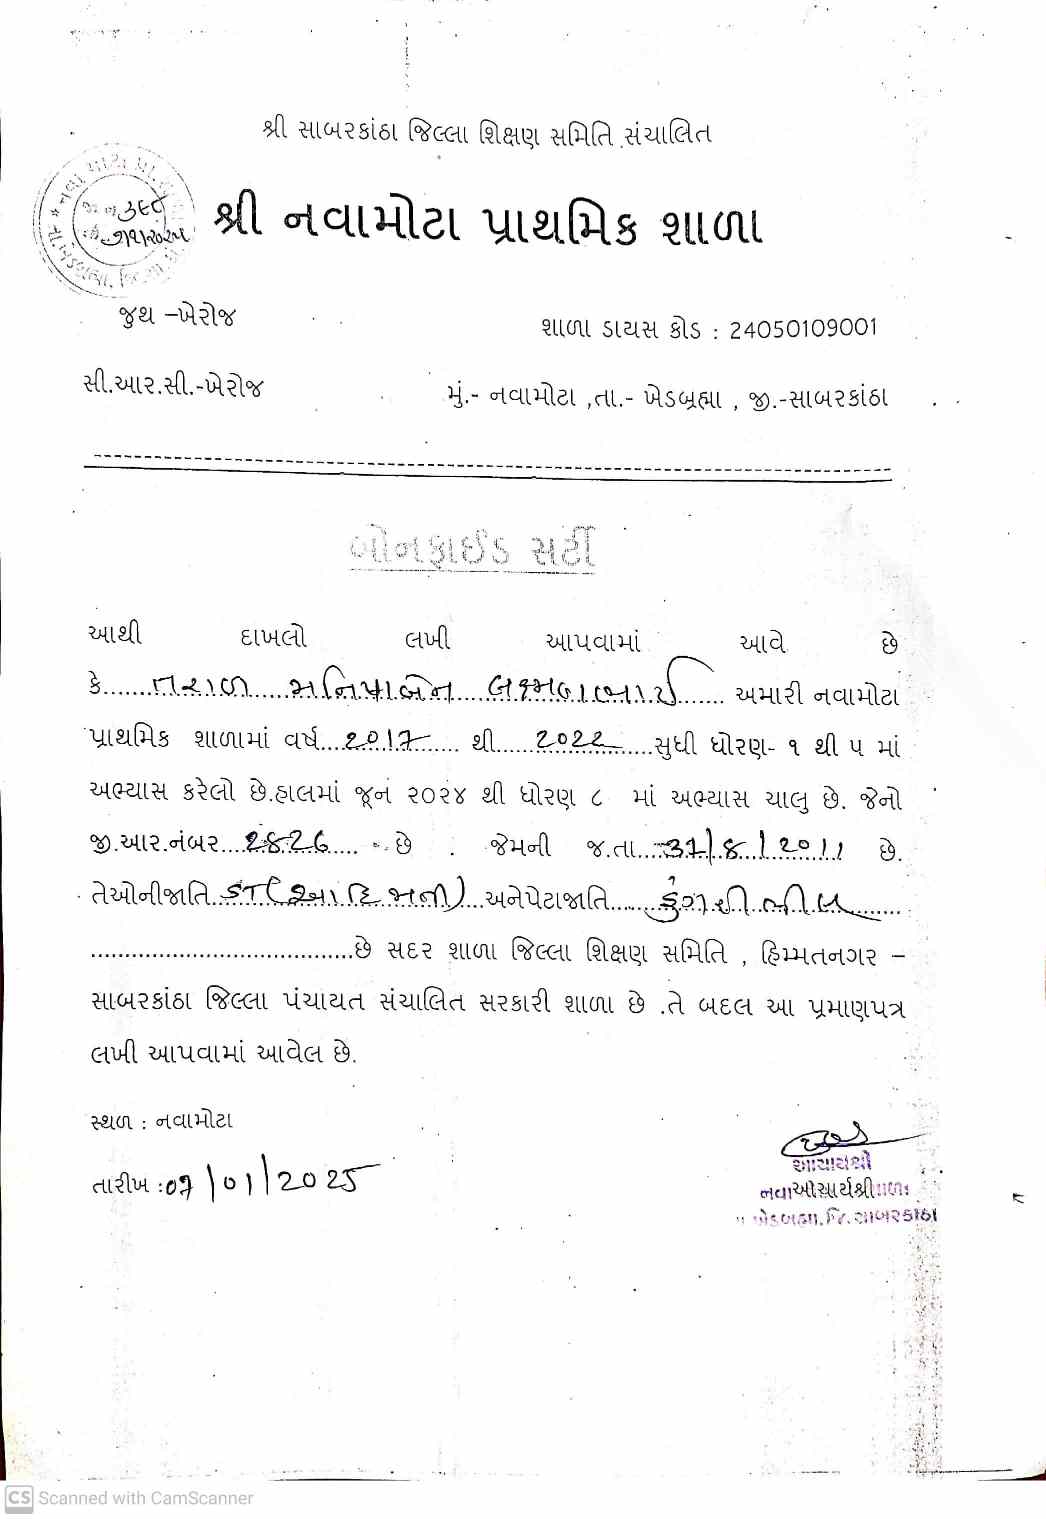 શ્રી સાબરકાંઠા જિલ્લા શિક્ષણ સમિતિ સંચાલિત
શ્રી નવામોટા પ્રાથમિક શાળા
જુથ –ખેરોજ
શાળા ડાયસ કોડ : 24050109001
સી.આર.સી.-ખેરોજ
મું.- નવામોટા ,તા.- ખેડબ્રહ્મા , જી.-સાબરકાંઠા
બોનફાઈડ સર્ટી
આથી દાખલો લખી આપવામાં આવે છે
કે....... તરાળ ..... મનિષાબેન લક્ષ્મણભાઈ ....... અમારી નવામોટા
પ્રાથમિક શાળામાં વર્ષ...2017.... થી.....2022....સુધી ધોરણ- ૧ થી ૫ માં
અભ્યાસ કરેલો છે.હાલમાં જૂન ૨૦૨૪ થી ધોરણ ૮ માં અભ્યાસ ચાલુ છે. જેનો
જી.આર.નંબર.... .... છે . જેમની જ.તા...31/8/2011 છે.
તેઓનીજાતિ..ST(આદિજાતી)...અનેપેટાજાતિ......ડુંગરી ભીલ.......
.......................................છે સદર શાળા જિલ્લા શિક્ષણ સમિતિ , હિમ્મતનગર –
સાબરકાંઠા જિલ્લા પંચાયત સંચાલિત સરકારી શાળા છે .તે બદલ આ પ્રમાણપત્ર
લખી આપવામાં આવેલ છે.
સ્થળ : નવામોટા
તારીખ :07/01/2025
આચાર્યશ્રી
આચાર્યશ્રી
ખેડબ્રહ્મા, જિ.સાબરકાંઠા
CS Scanned with CamScanner